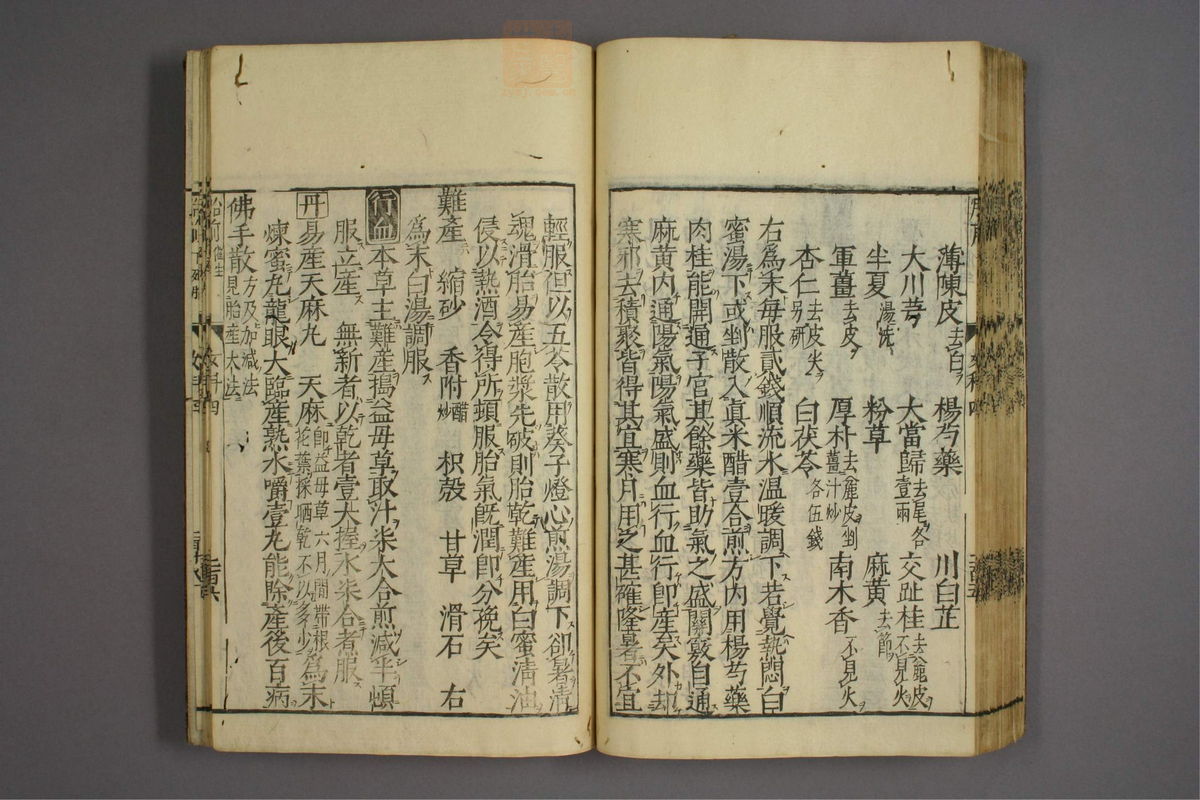 薄陳皮去白 楊芍藥 川白芷
大川芎 大當歸去尾各壹兩 交趾桂去麁皮不見火
半夏湯洗 粉草 麻黃去節
軍薑去皮 厚朴去麁皮剉薑汁炒 南木香不見火
杏仁去皮尖另研 白茯苓各伍錢
右爲末每服貳錢順流水溫暖調下若覺熱悶白
蜜湯下或剉散入眞米醋壹合煎方内用楊芍藥
肉桂能開通子官其餘藥皆助氣之盛關竅自通
麻黃内通陽氣陽氣盛則血行血行卽產矣外却
寒邪去積聚皆得其宜寒月用之甚穩隆暑不宜
輕服但以五苓散用葵子燈心煎湯調下卻暑淸
魂滑胎易產胞漿先破則胎乾難產用白蜜淸油
侵以熱酒令得所頓服胎氣旣潤卽分娩矣
難產 縮砂 香附醋炒 枳殼 甘草 滑石 右
爲末白湯調服
行血 本草主難產搗益母草取汁柒大合煎減半頓
服立產 無新者以乾者壹大握水柒合煮服
丹 易產天麻丸 天麻卽益母草六月間帶根花葉採晒乾不以多少爲末
煉蜜丸龍眼大臨產熟水嚼壹丸能除產後百病
佛手散方及加減法見胎產大法